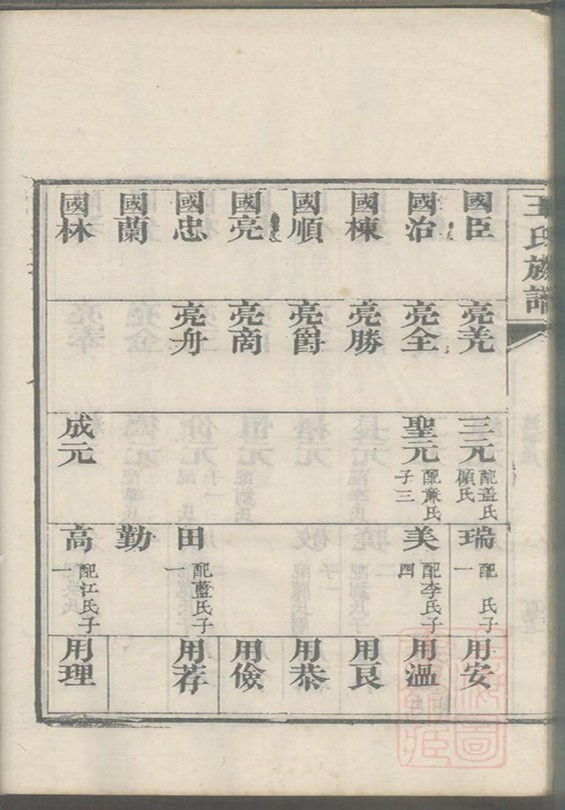 王氏族譜
國臣
國治
國棟
國順
國亮
國忠
國蘭
國林
亮羌
亮全
亮勝
亮爵
亮商
亮舟
三元 配蓋氏
顧氏
聖元 配兼氏
子三
成元
瑞 配 氏子
一
美 配李氏子
四
田 配藍氏子
一
勤
高 配江氏子
一
用安
用溫
用良
用恭
用儉
用荐
用理